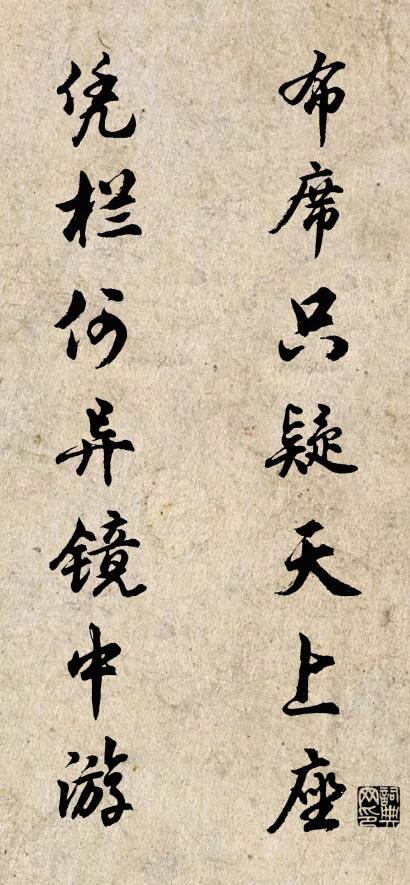 布席只疑天上座
凭栏何异镜中游
词典网印